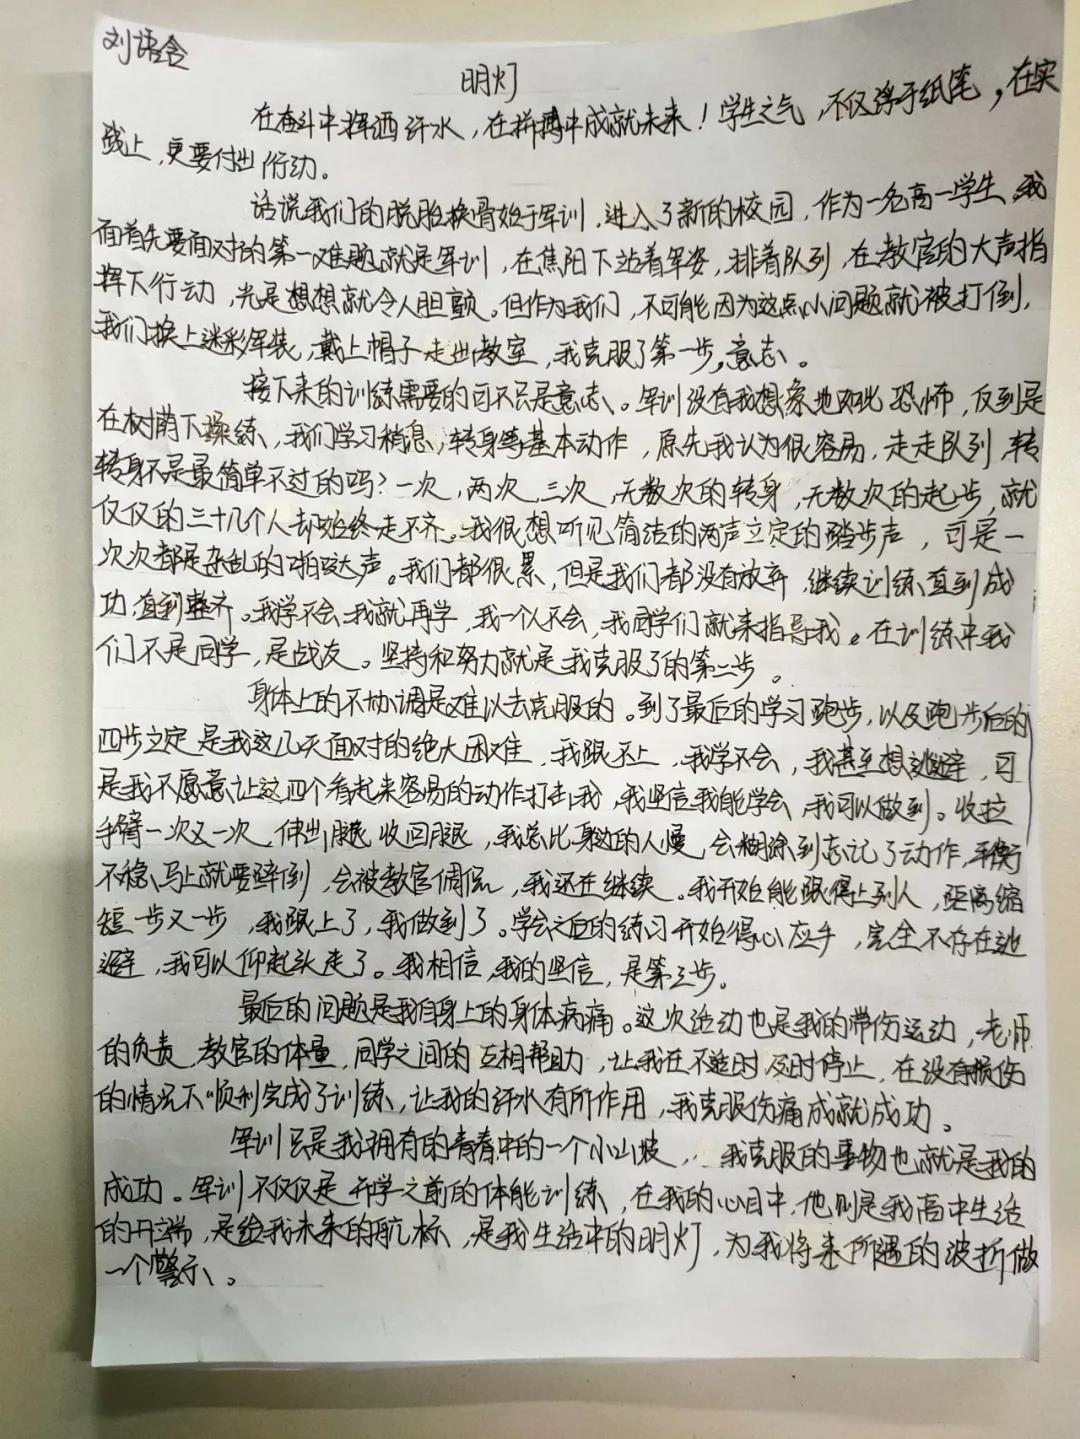 刘语含
明灯
在奋斗中挥洒汗水，在拼搏中成就未来！学生之气，不仅浮于纸笔，在实
践上，更要付出行动。
话说我们的脱胎换骨始于军训，进入了新的校园，作为一名高一学生，我
面首先要面对的第一难题就是军训，在焦阳下站着军姿，排着队列，在教官的大声指
挥下行动，光是想想就令人胆颤。但作为我们，不可能因为这点小问题就被打倒，
我们换上迷彩军装，戴上帽子走出教室，我克服了第一步，意志。
接下来的训练需要的可不只是意志。军训没有我想象地如此恐怖，反到是
在树荫下操练，我们学习稍息，转身等基本动作，原先我认为很容易，走走队列，转
转身不是最简单不过的吗？一次，两次，三次，无数次的转身，无数次的起步，就
仅仅的三十几个人却始终走不齐。我很想听见简洁的两声立定的踏步声，可是一
次次都是杂乱的啪哒声。我们都很累，但是我们都没有放弃，继续训练直到成
功，直到整齐。我学不会，我就再学，我一个人不会，我同学们就来指导我。在训练中我
们不是同学，是战友。坚持和努力就是我克服了的第二步。
身体上的不协调是难以去克服的。到了最后的学习跑步，以及跑步后的
四步立定是我这几天面对的绝大困难，我跟不上，我学不会，我甚至想逃避，可
是我不愿意让这四个看起来容易的动作打击我，我坚信我能学会，我可以做到。收拉
手臂一次又一次，伸出腿，收回腿，我总比身边的人慢，会糊涂到忘记了动作，平衡
不稳，马上就要摔到，会被教官调侃，我还在继续。我开始能跟得上别人，距离缩
短一步又一步，我跟上了，我做到了。学会之后的练习开始得心应手，完全不存在逃
避，我可以仰起头走了。我相信，我的坚信，是第三步。
最后的问题是我自身上的身体病痛。这次运动也是我的带伤运动，老师
的负责，教官的体量，同学之间的互相帮助，让我在不适时及时停止，在没有损伤
的情况下顺利完成了训练，让我的汗水有所作用，我克服伤痛成就成功。
军训只是我拥有的青春中的一个小山坡，我克服的事物也就是我的
成功。军训不仅仅是开学之前的体能训练，在我的心目中，他则是我高中生活
的开端，是给我未来的航标，是我生活中的明灯，为我将来所遇的波折做
一个警示。